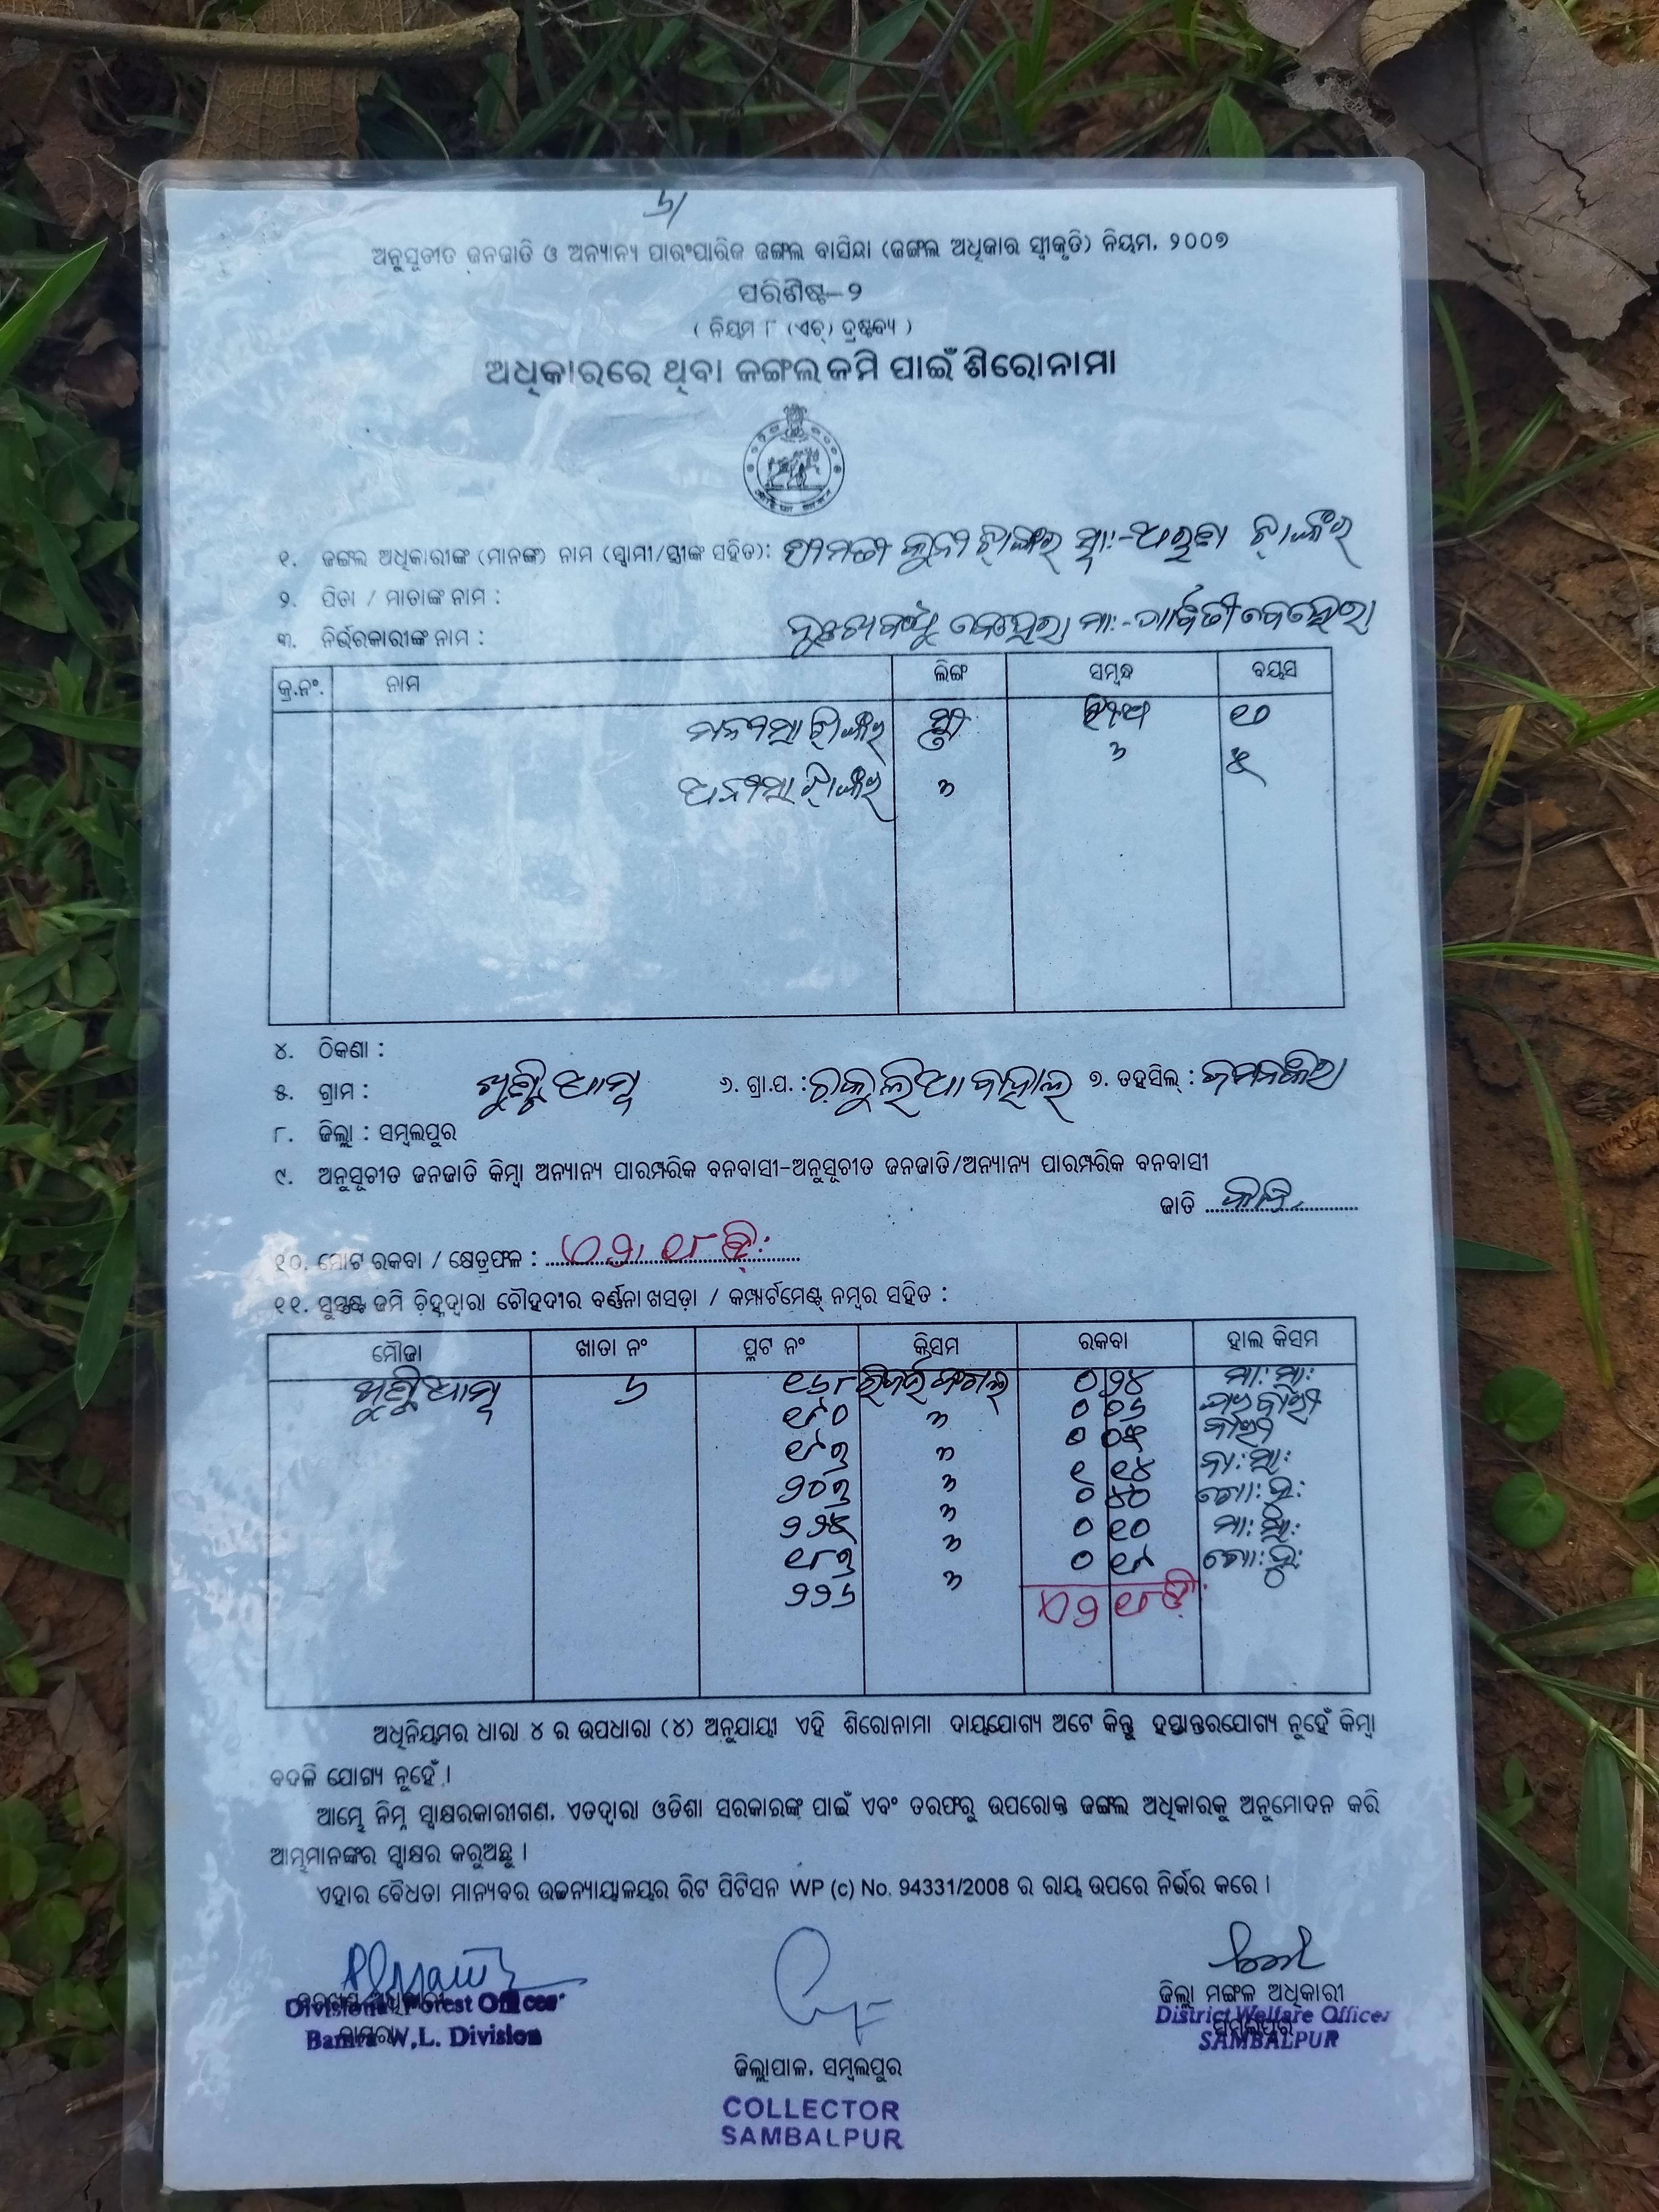 ୬/
ଅନୁସୂଚୀତ ଜନଜାତି ଓ ଅନ୍ୟାନ୍ୟ ପାରଂପାରିକ ଜଙ୍ଗଲ ବାସିନ୍ଦା (ଜଙ୍ଗଲ ଅଧିକାର ସ୍ୱୀକୃତି) ନିୟମ, ୨୦୦୭
ପରିଶିଷ୍ଟ-୨
( ନିୟମ ୮ (ଏଚ୍) ଦ୍ରଷ୍ଟବ୍ୟ )
ଅଧିକାରରେ ଥିବା ଜଙ୍ଗଲ ଜମି ପାଇଁ ଶିରୋନାମା
୧. ଜଙ୍ଗଲ ଅଧିକାରୀଙ୍କ (ମାନଙ୍କ) ନାମ (ସ୍ୱାମୀ/ସ୍ତ୍ରୀଙ୍କ ସହିତ):
୨. ପିତା / ମାତାଙ୍କ ନାମ :
୩. ନିର୍ଭରକାରୀଙ୍କ ନାମ :
କ୍ର.ନଂ. ନାମ ଲିଙ୍ଗ ସମ୍ବନ୍ଧ ବୟସ
ସ୍ତ୍ରୀ ଝିଅ ୧୦
" " ୫
୪. ଠିକଣା :
୫. ଗ୍ରାମ : ଖୁଣ୍ଟିଆମ୍ବ ୬. ଗ୍ରା.ପ. : ଟାକୁଲିଆ ବାହାଲ୍ ୭. ତହସିଲ୍ : ଜମନକିରା
୮. ଜିଲ୍ଲା : ସମ୍ବଲପୁର
୯. ଅନୁସୂଚୀତ ଜନଜାତି କିମ୍ବା ଅନ୍ୟାନ୍ୟ ପାରମ୍ପରିକ ବନବାସୀ-ଅନୁସୂଚୀତ ଜନଜାତି/ଅନ୍ୟାନ୍ୟ ପାରମ୍ପରିକ ବନବାସୀ
ଜାତି
୧୦. ମୋଟ ରକବା / କ୍ଷେତ୍ରଫଳ : ଏ ୨। ୧୮ ଡି:
୧୧. ସୁସ୍ପଷ୍ଟ ଜମି ଚିହ୍ନଦ୍ୱାରା ଚୌହଦୀର ବର୍ଣ୍ଣନା ଖସଡ଼ା / କମ୍ପାର୍ଟମେଣ୍ଟ୍ ନମ୍ବର ସହିତ :
ମୌଜା ଖାତା ନଂ ପ୍ଲଟ ନଂ କିସମ ରକବା ହାଲ କିସମ
ଖୁଣ୍ଟିଆମ୍ବ ୬ ୧୬୮ ରିଜର୍ଭ ଜଙ୍ଗଲ୍ ୦ ୨୪ ମା: ସା:
୧୯୦ " ୦ ୦୬
୧୯୩ " ୦ ୦୫
୨୦୩ " ୧ ୧୪
୨୨୫ " ୦ ୪୦
୧୮୩ " ୦ ୧୦ ମା: ସା:
୨୨୬ " ୦ ୧୯
ଏ ୨ ୧୮ ଡି:
ଅଧିନିୟମର ଧାରା ୪ ର ଉପଧାରା (୪) ଅନୁଯାୟୀ ଏହି ଶିରୋନାମା ଦାୟଯୋଗ୍ୟ ଅଟେ କିନ୍ତୁ ହସ୍ତାନ୍ତରଯୋଗ୍ୟ ନୁହେଁ କିମ୍ବା
ବଦଳି ଯୋଗ୍ୟ ନୁହେଁ ।
ଆମ୍ଭେ ନିମ୍ନ ସ୍ୱାକ୍ଷରକାରୀଗଣ, ଏତଦ୍ୱାରା ଓଡିଶା ସରକାରଙ୍କ ପାଇଁ ଏବଂ ତରଫରୁ ଉପରୋକ୍ତ ଜଙ୍ଗଲ ଅଧିକାରକୁ ଅନୁମୋଦନ କରି
ଆମ୍ଭମାନଙ୍କର ସ୍ୱାକ୍ଷର କରୁଅଛୁ ।
ଏହାର ବୈଧତା ମାନ୍ୟବର ଉଚ୍ଚନ୍ୟାୟାଳୟର ରିଟ ପିଟିସନ WP (c) No. 94331/2008 ର ରାୟ ଉପରେ ନିର୍ଭର କରେ ।
ଜିଲ୍ଲା ମଙ୍ଗଳ ଅଧିକାରୀ
Divisional Forest Officer
District Welfare Officer
Bamra W.L. Division
ସମ୍ବଲପୁର
SAMBALPUR
ଜିଲ୍ଲାପାଳ, ସମ୍ବଲପୁର
COLLECTOR
SAMBALPUR